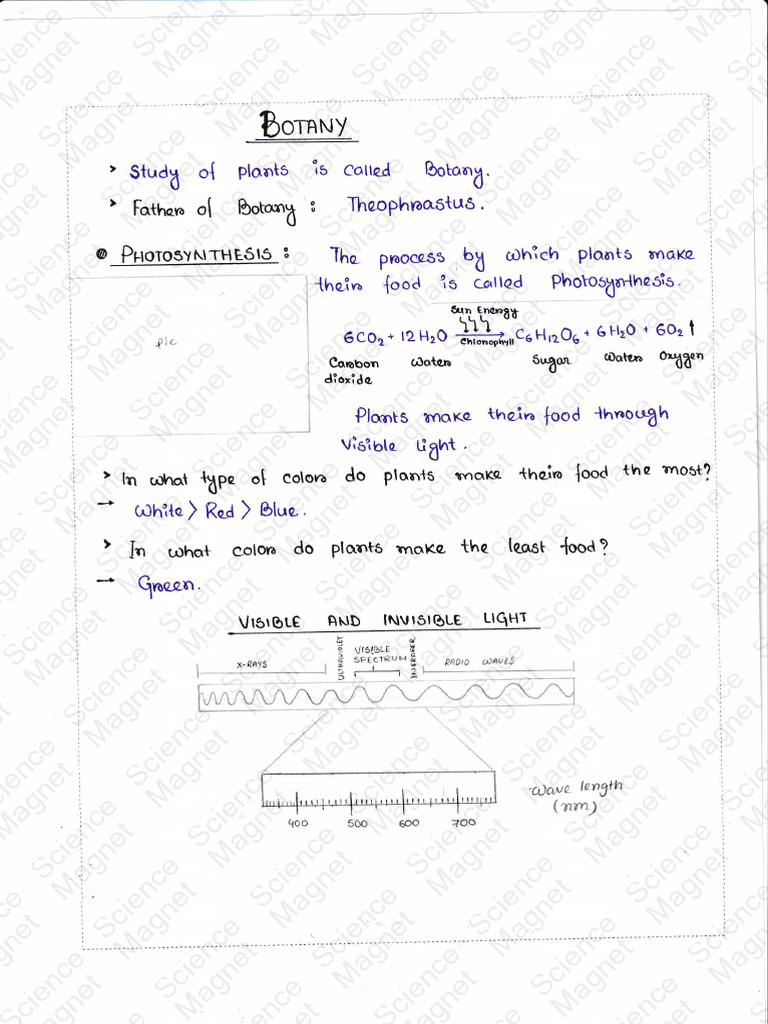 BOTANY
> Study of plants is called Botany.
> Father of Botany : Theophrastus.
PHOTOSYNTHESIS : The process by which plants make
their food is called Photosynthesis.
pic
Sun Energy
6CO2 + 12H2O → C6H12O6 + 6H2O + 6O2 ↑
Chlorophyll
Carbon dioxide Water Sugar Water Oxygen
Plants make their food through
Visible Light.
> In what type of color do plants make their food the most?
→ White > Red > Blue.
> In what color do plants make the least food?
→ Green.
VISIBLE AND INVISIBLE LIGHT
X-RAYS ULTRAVIOLET VISIBLE SPECTRUM INFRARER RADIO WAVES
400 500 600 700
wave length
(nm)
Science Magnet